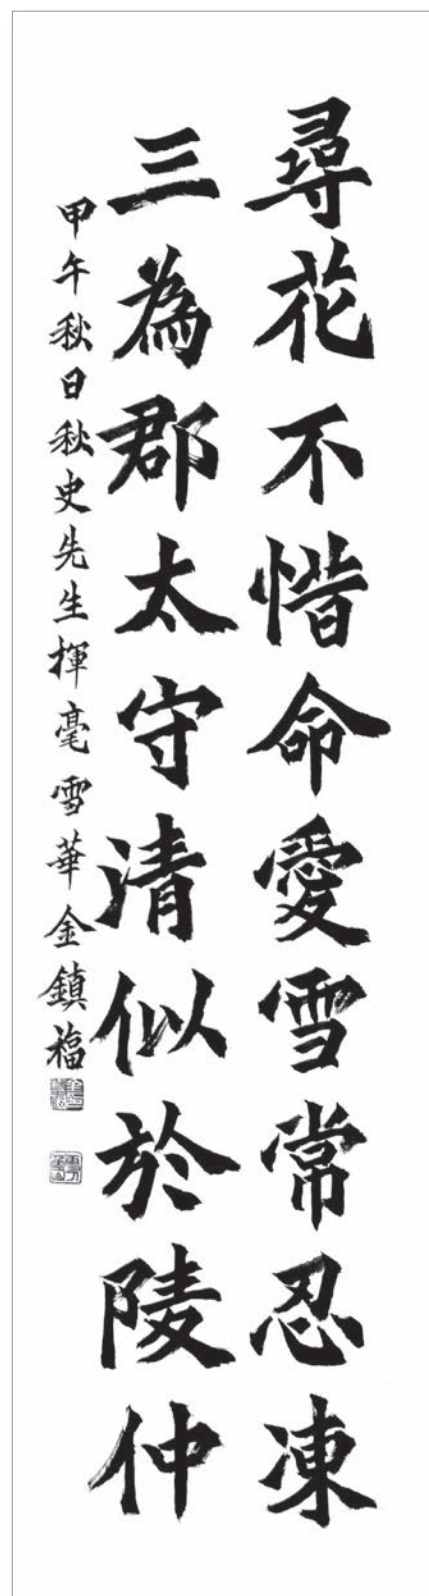 尋花不惜命愛雪常忍凍
三為郡太守清似於陵仲
甲午秋日秋史先生揮毫雪華金鎮福